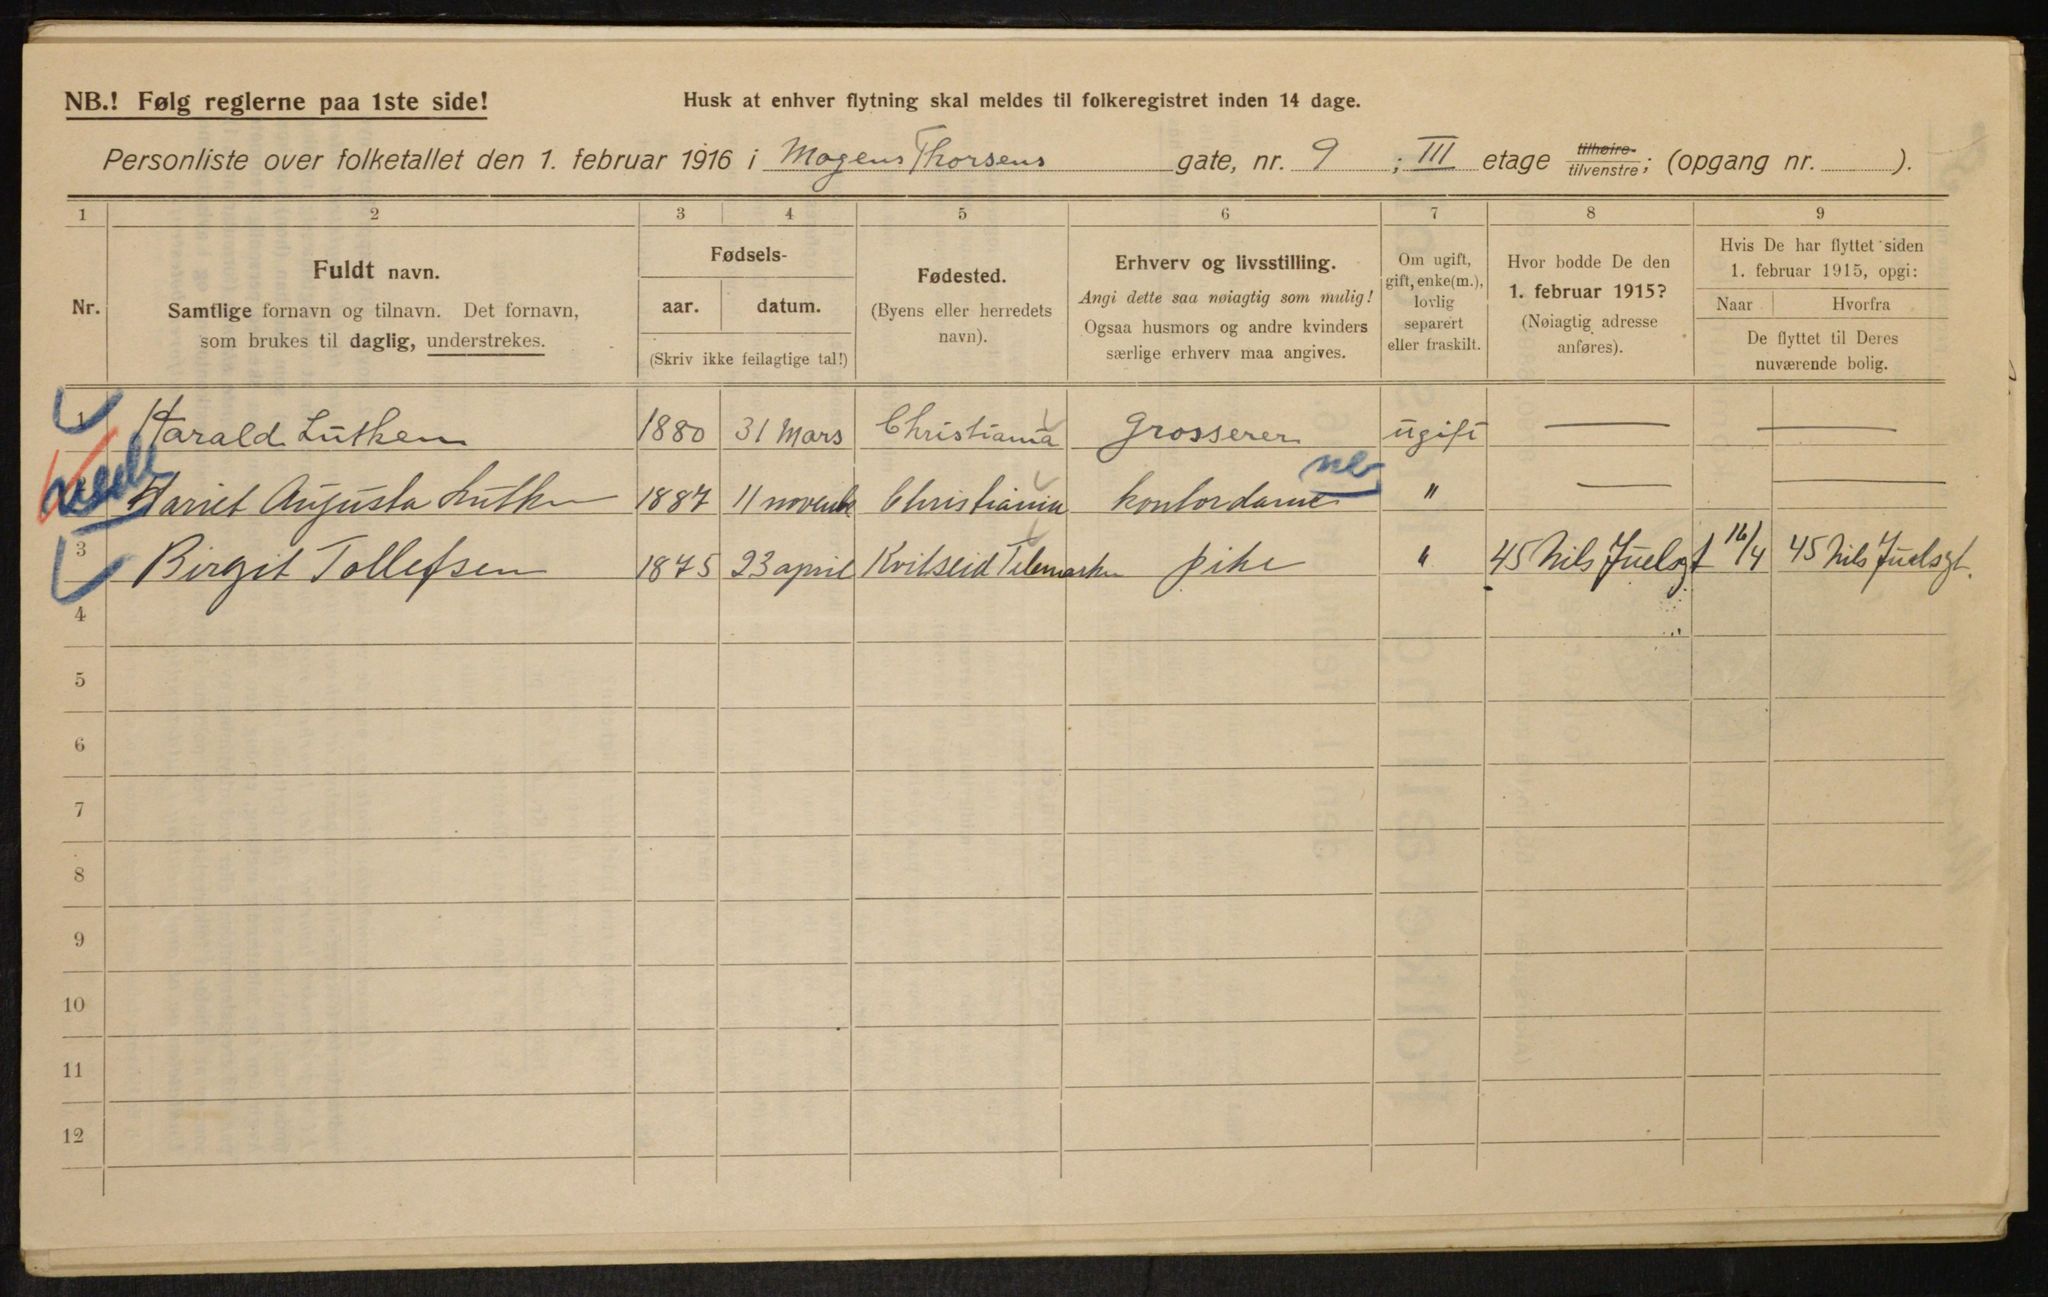 NB.! Følg reglerne paa 1ste side!
Husk at enhver flytning skal meldes til folkeregistret inden 14 dage.
Personliste over folketallet den 1. februar 1916 i Mogens Thorsens gate, nr. 9 ; III etage tilhøire- tilvenstre; (opgang nr. ).
1 2 3 4 5 6 7 8 9
Nr.
Fuldt navn.
Samtlige fornavn og tilnavn. Det fornavn,
som brukes til daglig, understrekes.
Fødsels-
aar. datum.
(Skriv ikke feilagtige tal!)
Fødested.
(Byens eller herredets
navn).
Erhverv og livsstilling.
Angi dette saa nøiagtig som mulig!
Ogsaa husmors og andre kvinders
særlige erhverv maa angives.
Om ugift,
gift, enke(m.),
lovlig
separert
eller fraskilt.
Hvor bodde De den
1. februar 1915?
(Nøiagtig adresse
anføres).
Hvis De har flyttet siden
1. februar 1915, opgi:
Naar Hvorfra
De flyttet til Deres
nuværende bolig.
1 Harald Lutken 1880 31 Mars Christiania Grosserer ugift — —
Harriet Augusta Lutken 1887 11 novembr Christiania kontordame " — —
3 Birgit Tollefsen 1875 23 april Kvitseid Telemarken pike " 45 Nils Juelsgt 16/4 45 Nils Juelsgt.
4
5
6
7
8
9
10
11
12